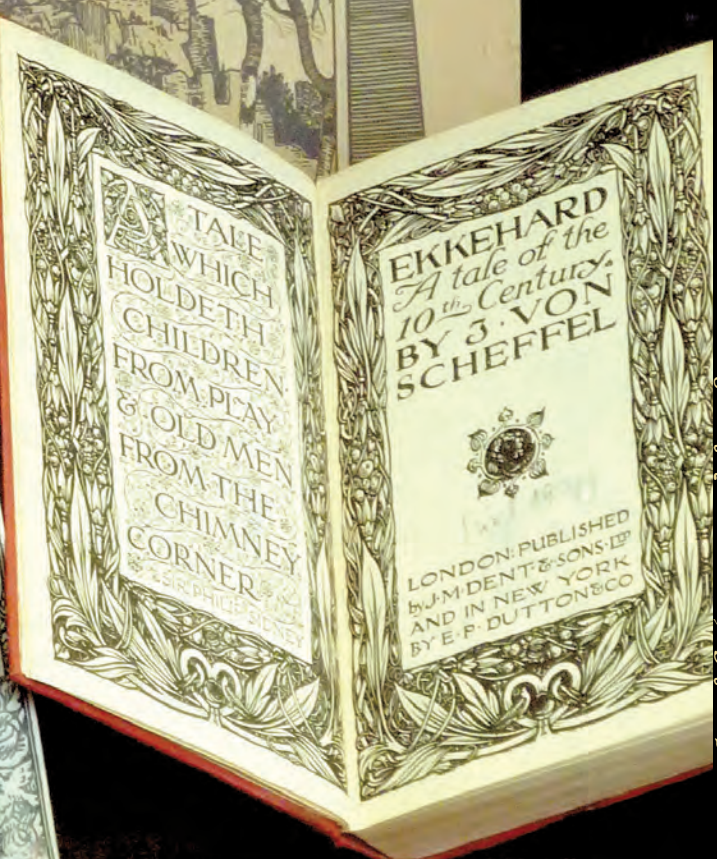 A TALE
WHICH
HOLDETH
CHILDREN
FROM PLAY
& OLD MEN
FROM THE
CHIMNEY
CORNER
SIR PHILIP SIDNEY
EKKEHARD
A tale of the
10th Century.
BY J. VON
SCHEFFEL
LONDON: PUBLISHED
by J. M. DENT & SONS LTD
AND IN NEW YORK
BY E. P. DUTTON & CO